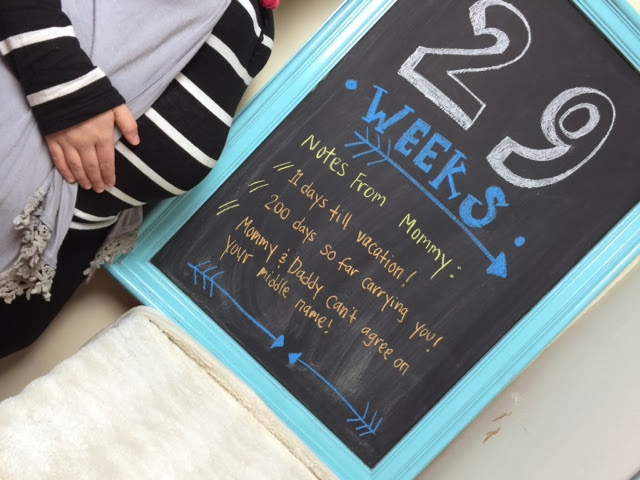 29
WEEKS
Notes From Mommy:
11 days till vacation!
200 days so far carrying you!
Mommy & Daddy can't agree on
your middle name!